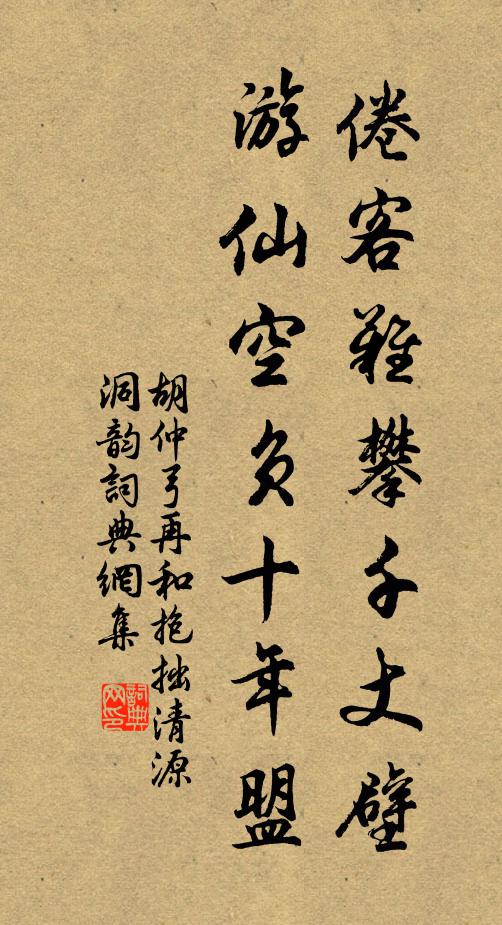 倦客難攀千丈壁
游仙空負十年盟
胡仲弓再和抱拙清源
洞韵詞典網集
詞典网印